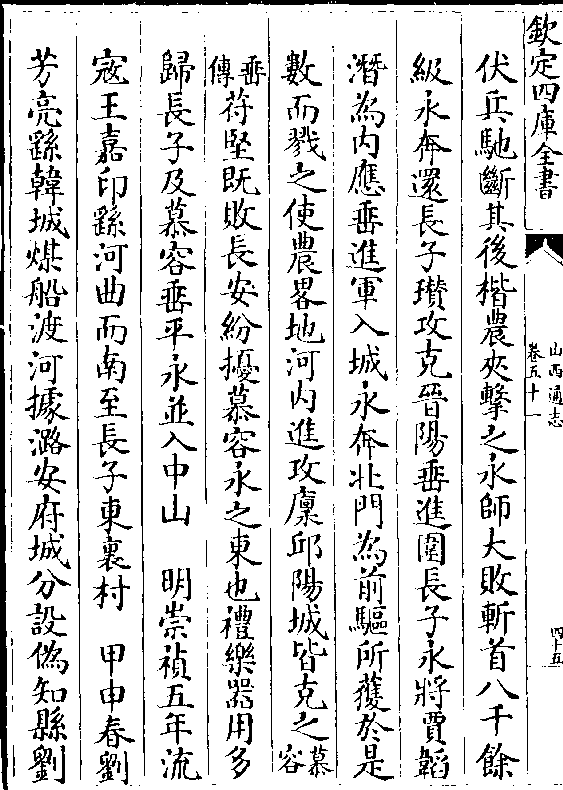 欽定四庫全書
山西通志
卷五十一
四十五
伏兵馳斷其後楷農夾擊之永師大敗斬首八千餘
級永奔還長子瓚攻克晉陽垂進圍長子永將賈韜
潛為内應垂進軍入城永奔北門為前驅所獲於是
數而戮之使農畧地河内進攻廩邱陽城皆克之慕容
垂傳苻堅既敗長安紛擾慕容永之東也禮樂器用多
歸長子及慕容垂平永並入中山 明崇禎五年流
寇王嘉印繇河曲而南至長子東裏村 甲申春劉
芳亮繇韓城煤船渡河據潞安府城分設偽知縣劉